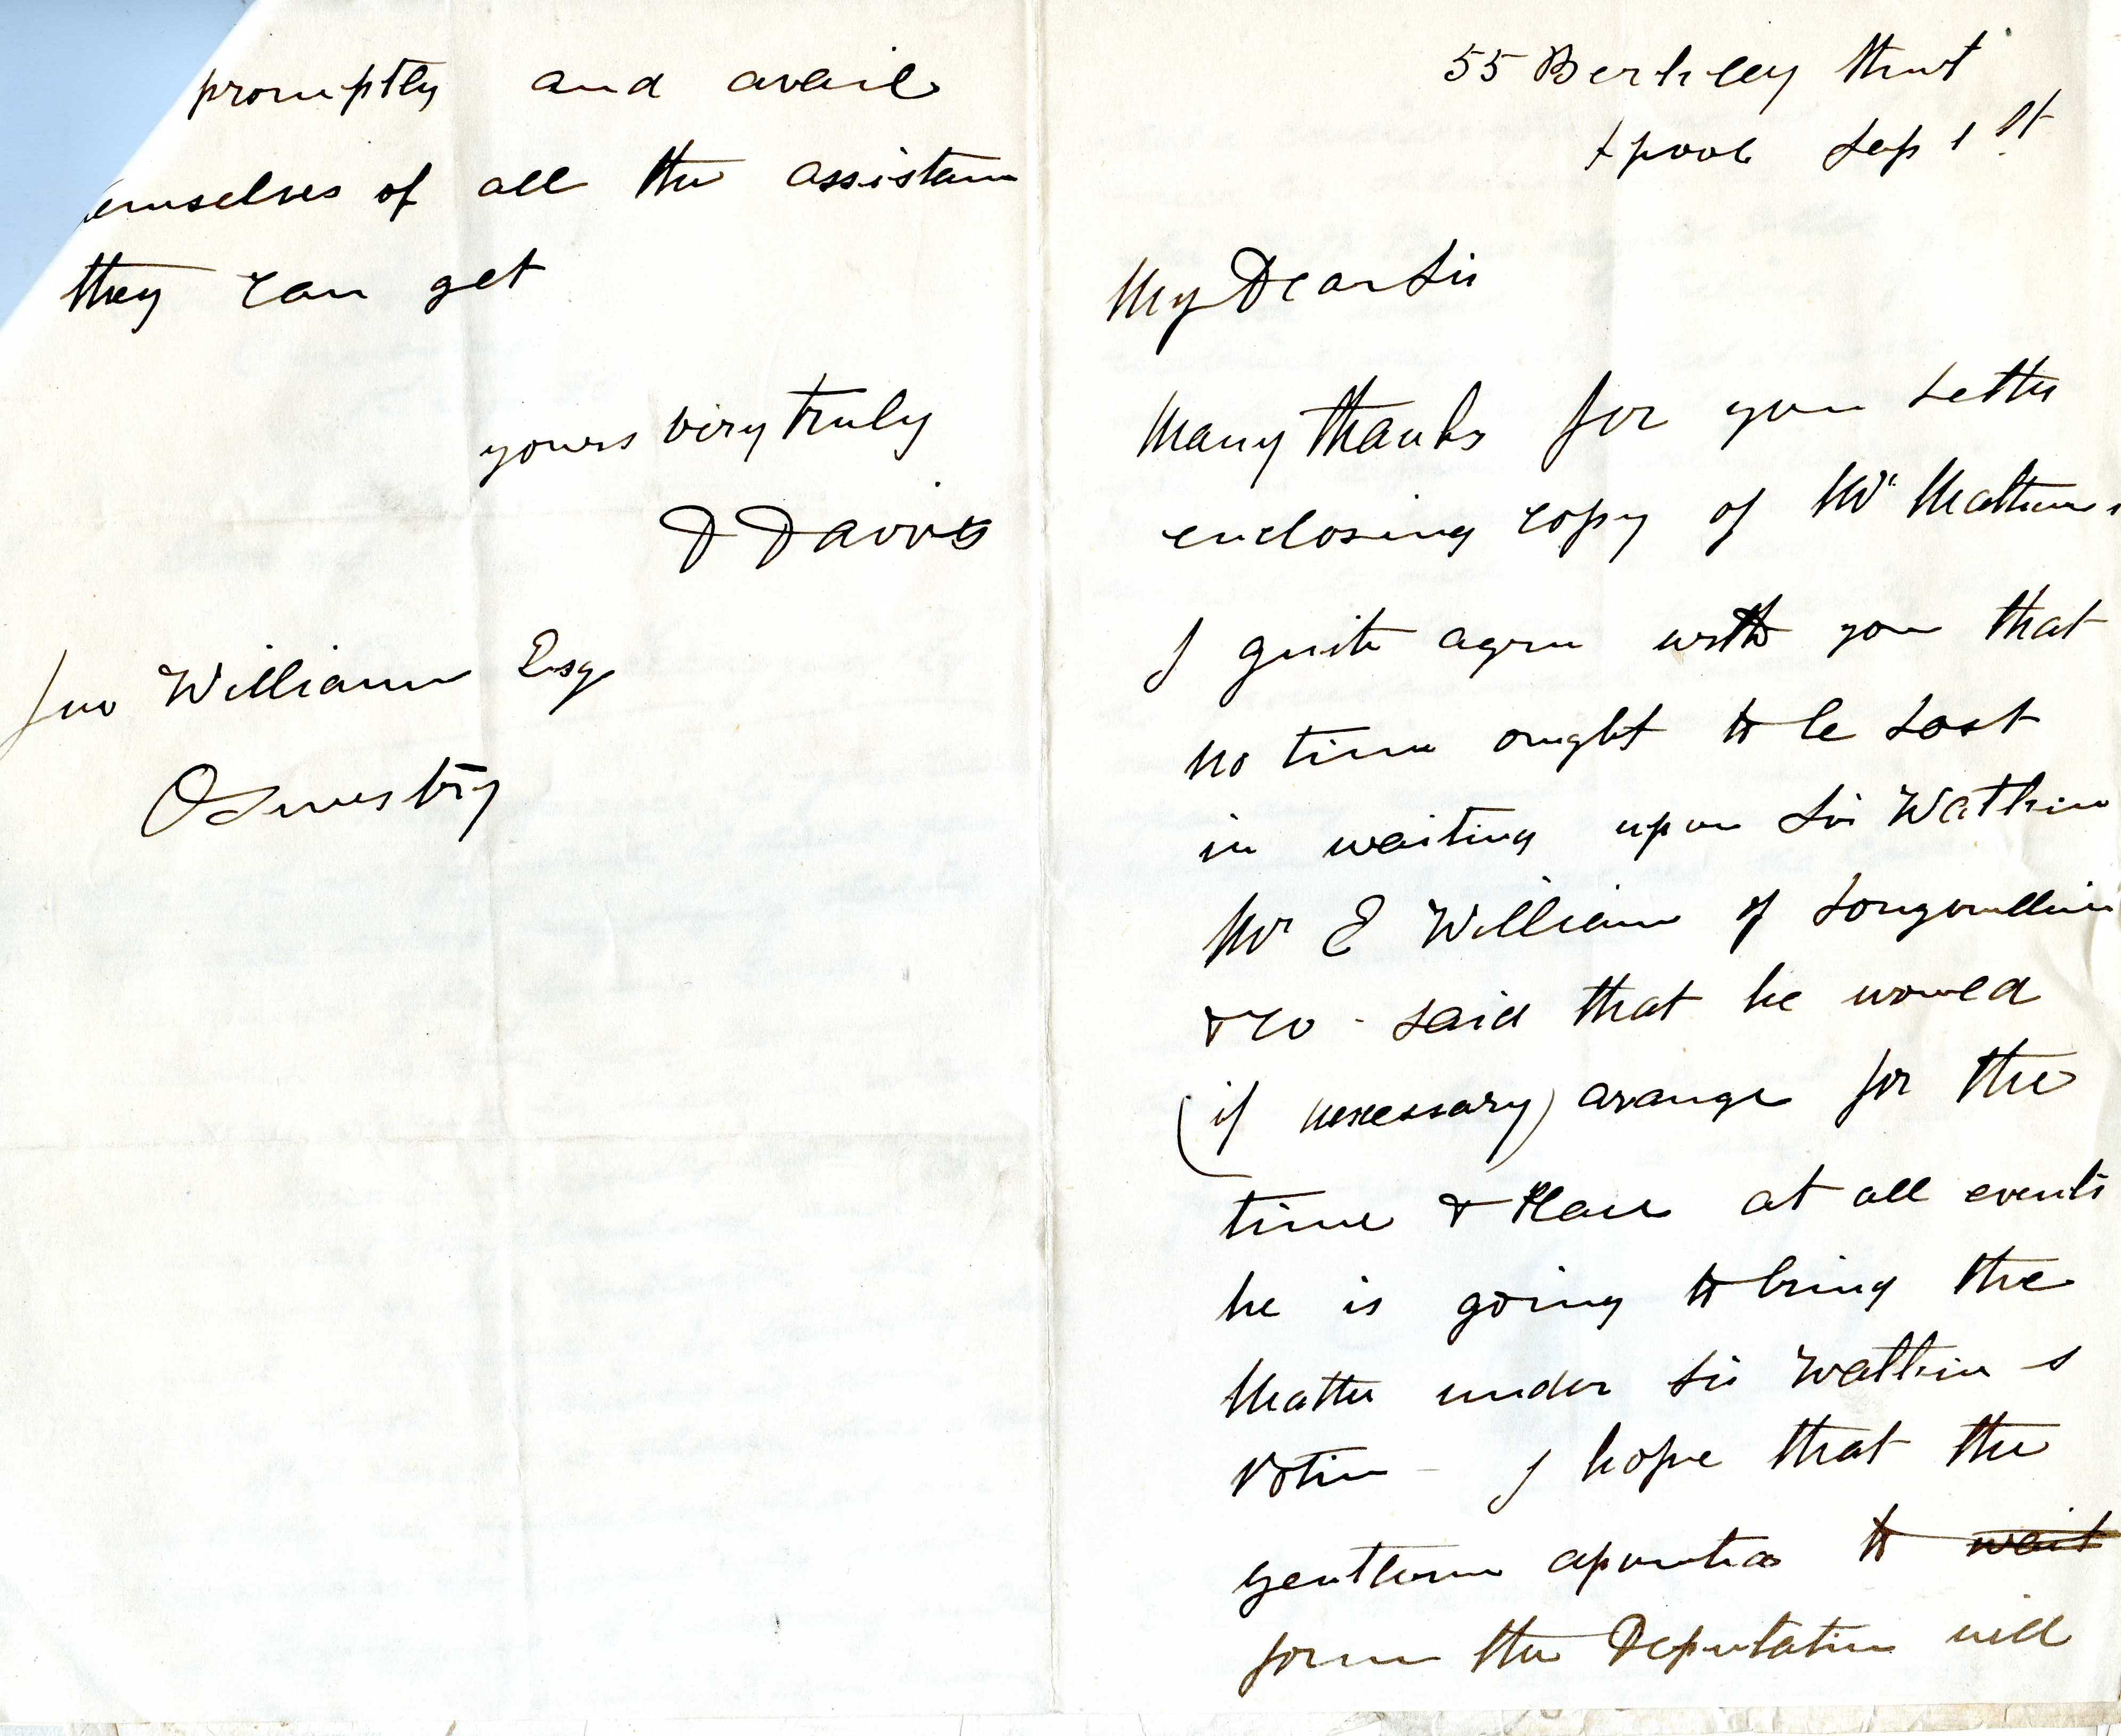 55 Berkley Street
Lpool Sep 1st
My Dear Sir
Many thanks for your Letter
enclosing copy of Mr Mathews
I quite agree with you that
no time ought to be Lost
in waiting upon Sir Watkin
Mr E Williams of
& Co - said that he would
(if necessary) arange for the
time & Place at all events
he is going to bring the
Matter under Sir Watkin s
Notice - I hope that the
gentlemen apointed to wait
form the Deputation will
promptly and avail
emselves of all the assistance
they can get
yours very truly
D Davis
Jno Williams Esq
Oswestry